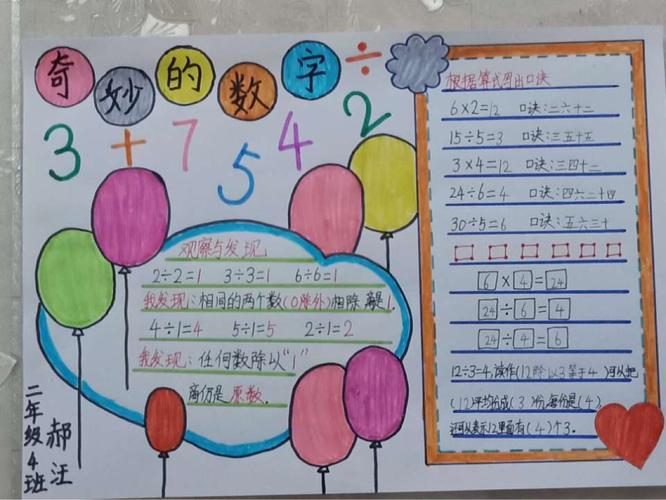 奇妙的数字÷
3+7542
观察与发现
2÷2=1 3÷3=1 6÷6=1
我发现:相同的两个数(0除外)相除,商是1.
4÷1=4 5÷1=5 2÷1=2
我发现:任何数除以“1”
商仍是原数。
二年级4班
郝汪
根据算式写出口诀
6×2=12 口诀:二六十二
15÷5=3 口诀:三五十五
3×4=12 口诀:三四十二
24÷6=4 口诀:四六二十四
30÷5=6 口诀:五六三十
6×4=24
24÷6=4
24÷4=6
12÷3=4,读作(12除以3等于4)可以把
(12)平均分成(3)份,每份是(4)
还可以表示12里面有(4)个3。